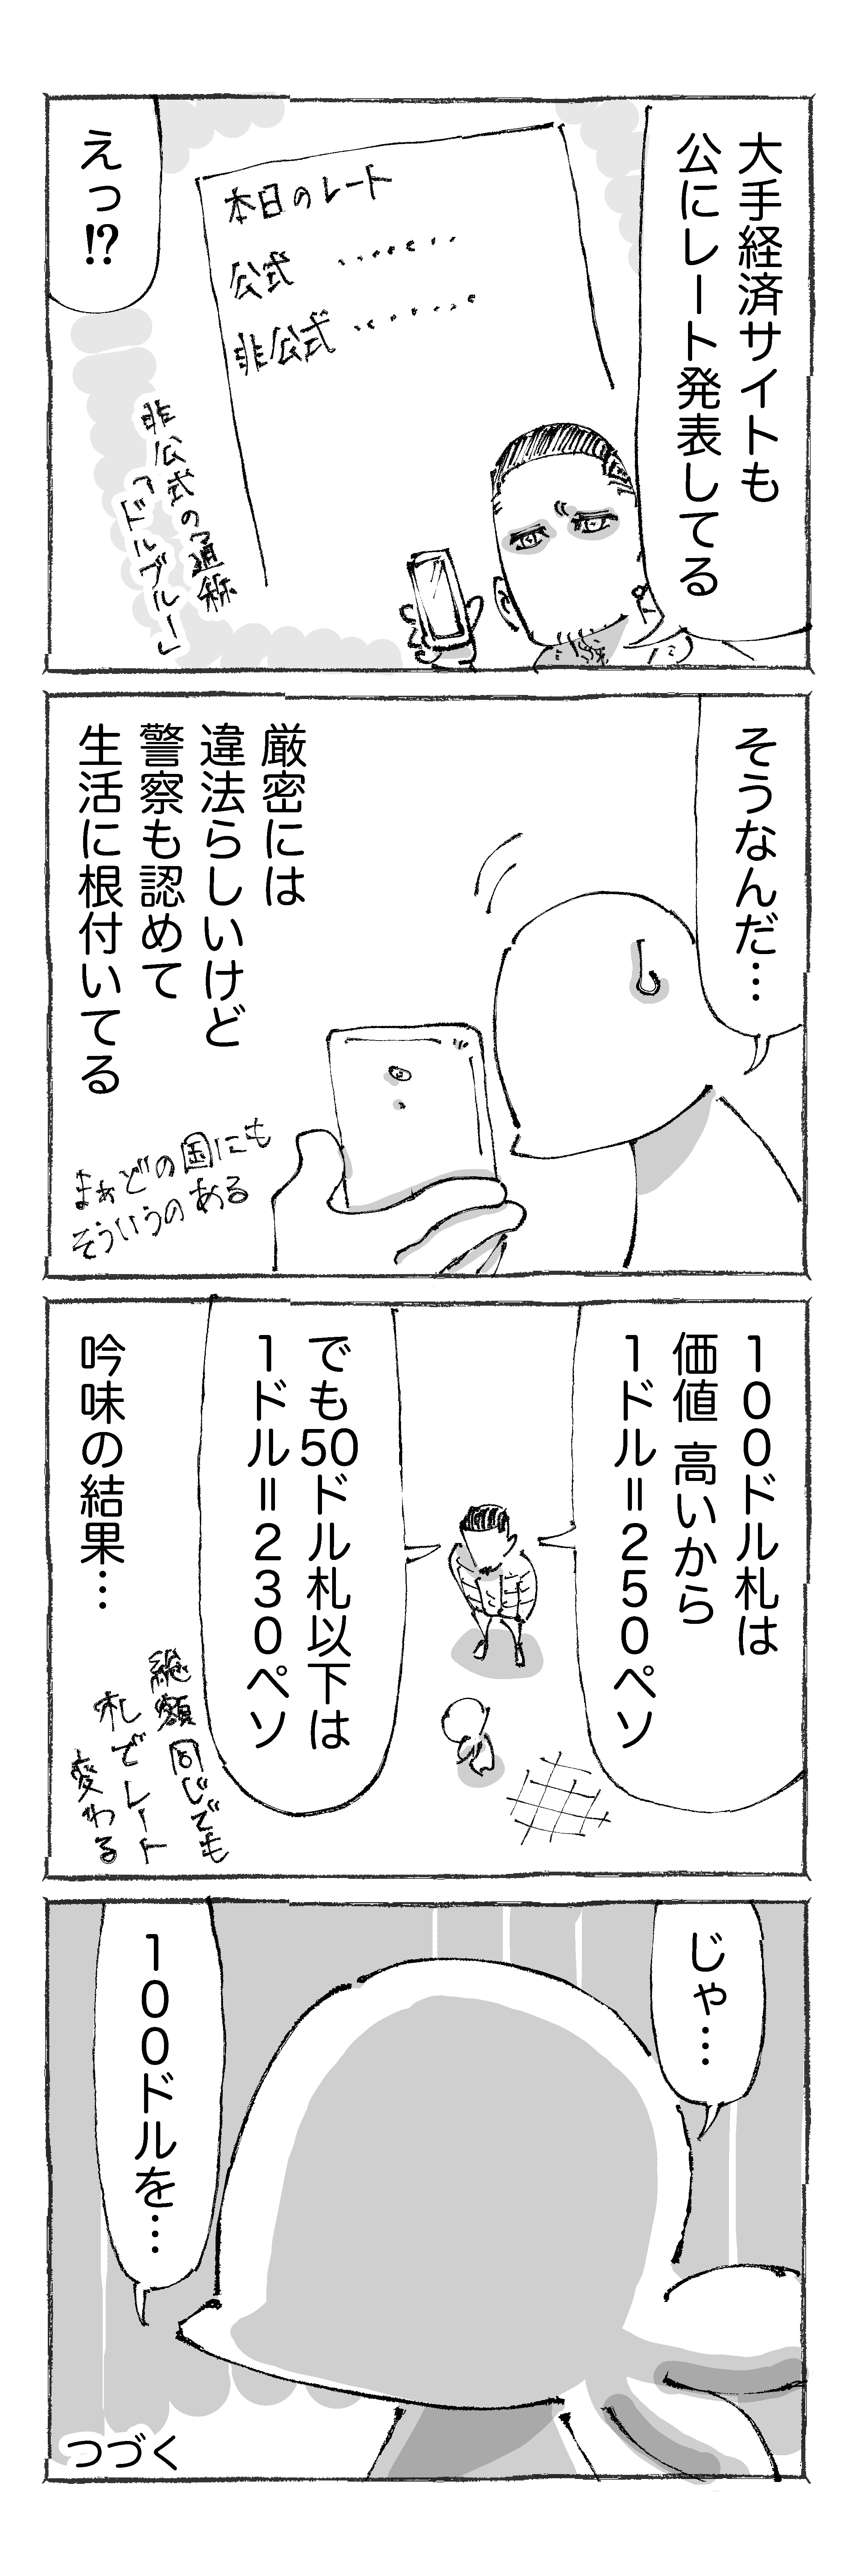 大手経済サイトも
公にレート発表してる
本日のレート
公式 ………
非公式 ………
えっ!?
非公式の通称
「ドルブルー」
そうなんだ…
厳密には
違法らしいけど
警察も認めて
生活に根付いてる
まぁどの国にも
そういうのある
100ドル札は
価値 高いから
1ドル=250ペソ
でも50ドル札以下は
1ドル=230ペソ
吟味の結果…
総額同じでも
札でレート
変わる
じゃ…
100ドルを…
つづく